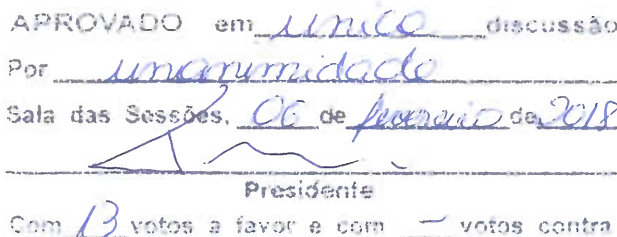 APROVADO em única discussão
Por unanimidade
Sala das Sessões, 06 de fevereiro de 2018
Presidente
Com 13 votos a favor e com — votos contra